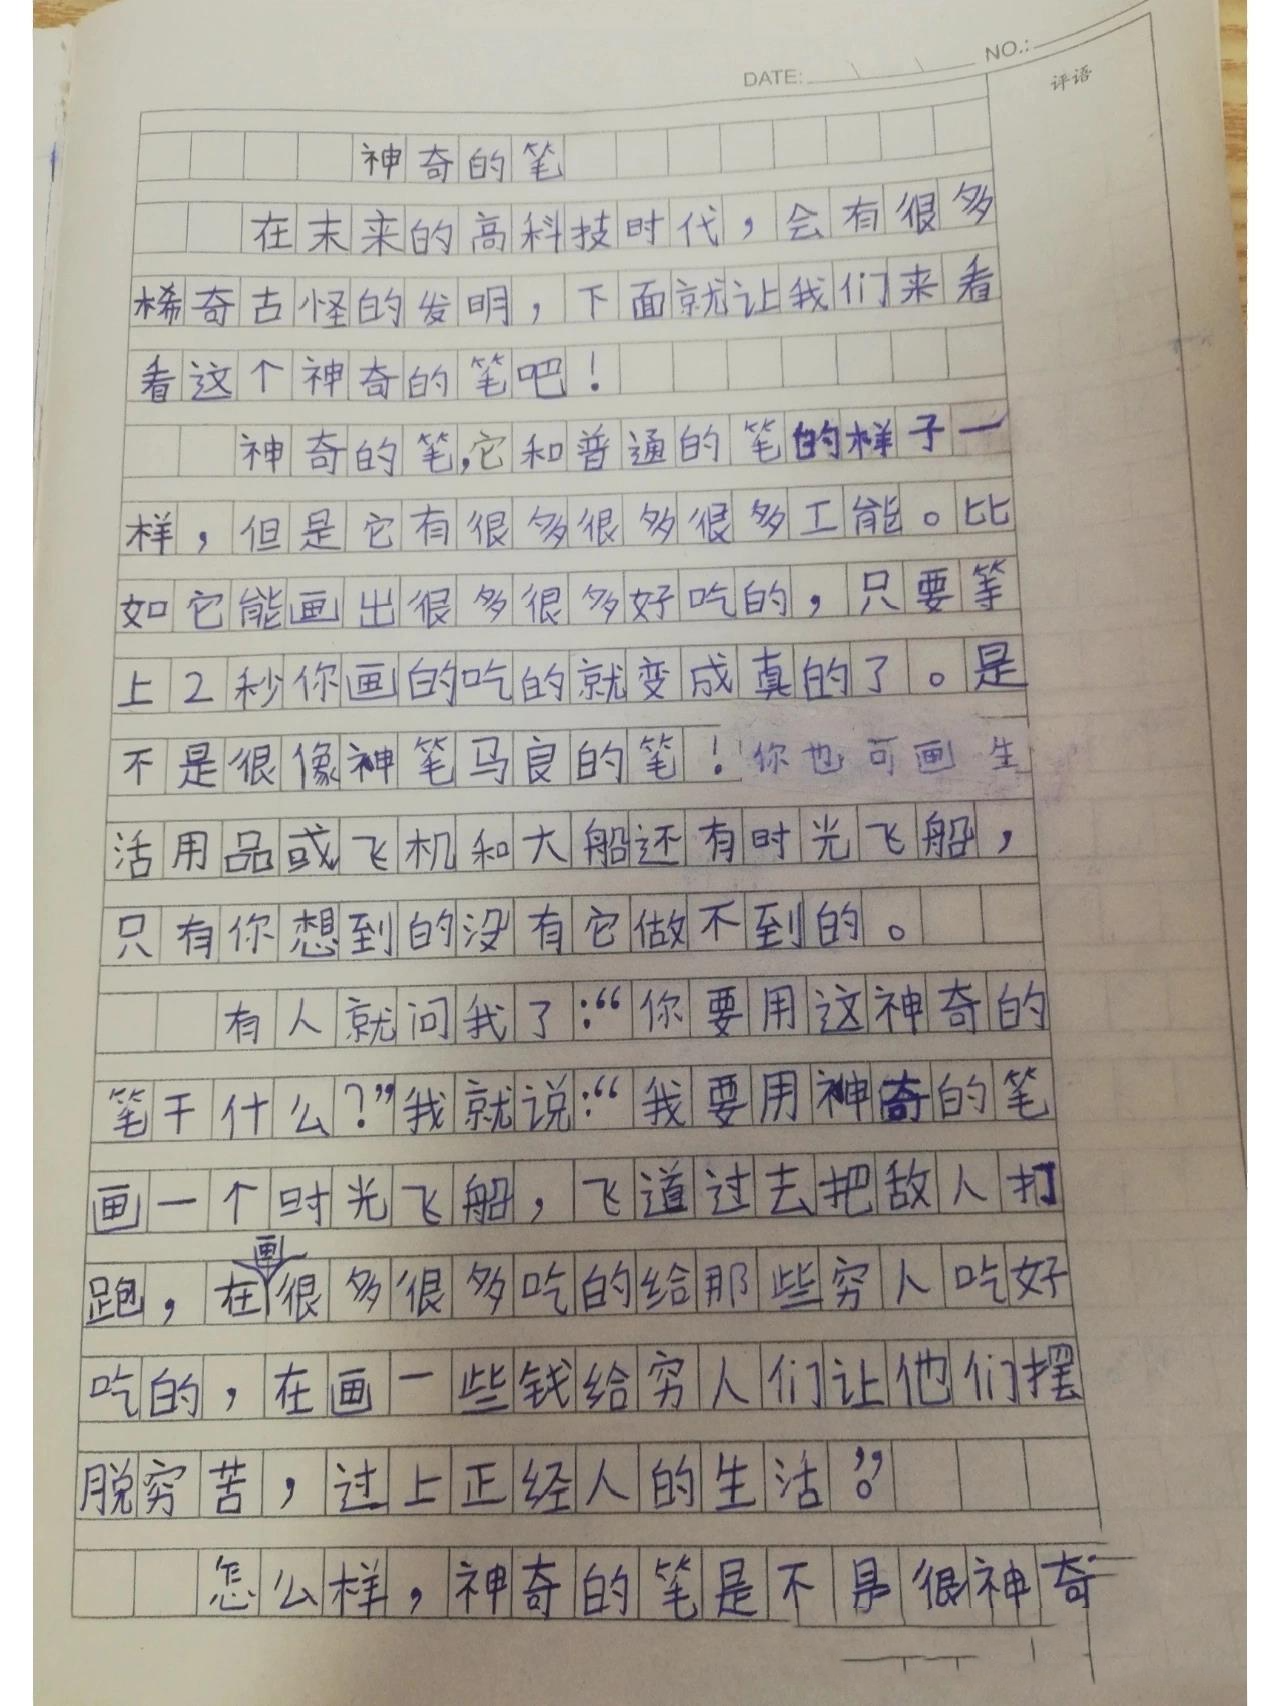 DATE: NO.:
评语
神奇的笔
在未来的高科技时代，会有很多
稀奇古怪的发明，下面就让我们来看
看这个神奇的笔吧！
神奇的笔，它和普通的笔的样子一
样，但是它有很多很多很多工能。比
如它能画出很多很多好吃的，只要等
上2秒你画的吃的就变成真的了。是
不是很像神笔马良的笔！你也可画生
活用品或飞机和大船还有时光飞船，
只有你想到的没有它做不到的。
有人就问我了：“你要用这神奇的
笔干什么？”我就说：“我要用神奇的笔
画一个时光飞船，飞道过去把敌人打
跑，在画很多很多吃的给那些穷人吃好
吃的，在画一些钱给穷人们让他们摆
脱穷苦，过上正经人的生活。”
怎么样，神奇的笔是不是很神奇